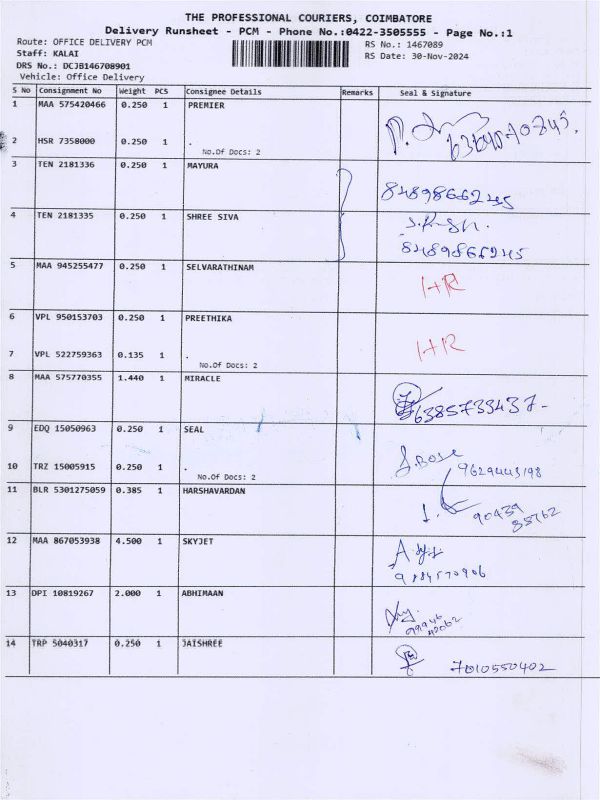 THE PROFESSIONAL COURIERS, COIMBATORE
Delivery Runsheet - PCM - Phone No.:0422-3505555 - Page No.:1
Route: OFFICE DELIVERY PCM RS No.: 1467089
Staff: KALAI RS Date: 30-Nov-2024
DRS No.: DCJB146708901
Vehicle: Office Delivery
S No Consignment No Weight PCS Consignee Details Remarks Seal & Signature
1 MAA 575420466 0.250 1 PREMIER
2 HSR 7358000 0.250 1 .
No.Of Docs: 2
3 TEN 2181336 0.250 1 MAYURA
8489866245
4 TEN 2181335 0.250 1 SHREE SIVA
8489866245
5 MAA 945255477 0.250 1 SELVARATHINAM
HR
6 VPL 950153703 0.250 1 PREETHIKA
HR
7 VPL 522759363 0.135 1 .
No.Of Docs: 2
8 MAA 575770355 1.440 1 MIRACLE
6385733437-
9 EDQ 15050963 0.250 1 SEAL
J.BOSE
9629443198
10 TRZ 15005915 0.250 1 .
No.Of Docs: 2
11 BLR 5301275059 0.385 1 HARSHAVARDAN
90439
35762
12 MAA 867053938 4.500 1 SKYJET
9884570906
13 DPI 10819267 2.000 1 ABHIMAAN
99946
40062
14 TRP 5040317 0.250 1 JAISHREE
7010550402